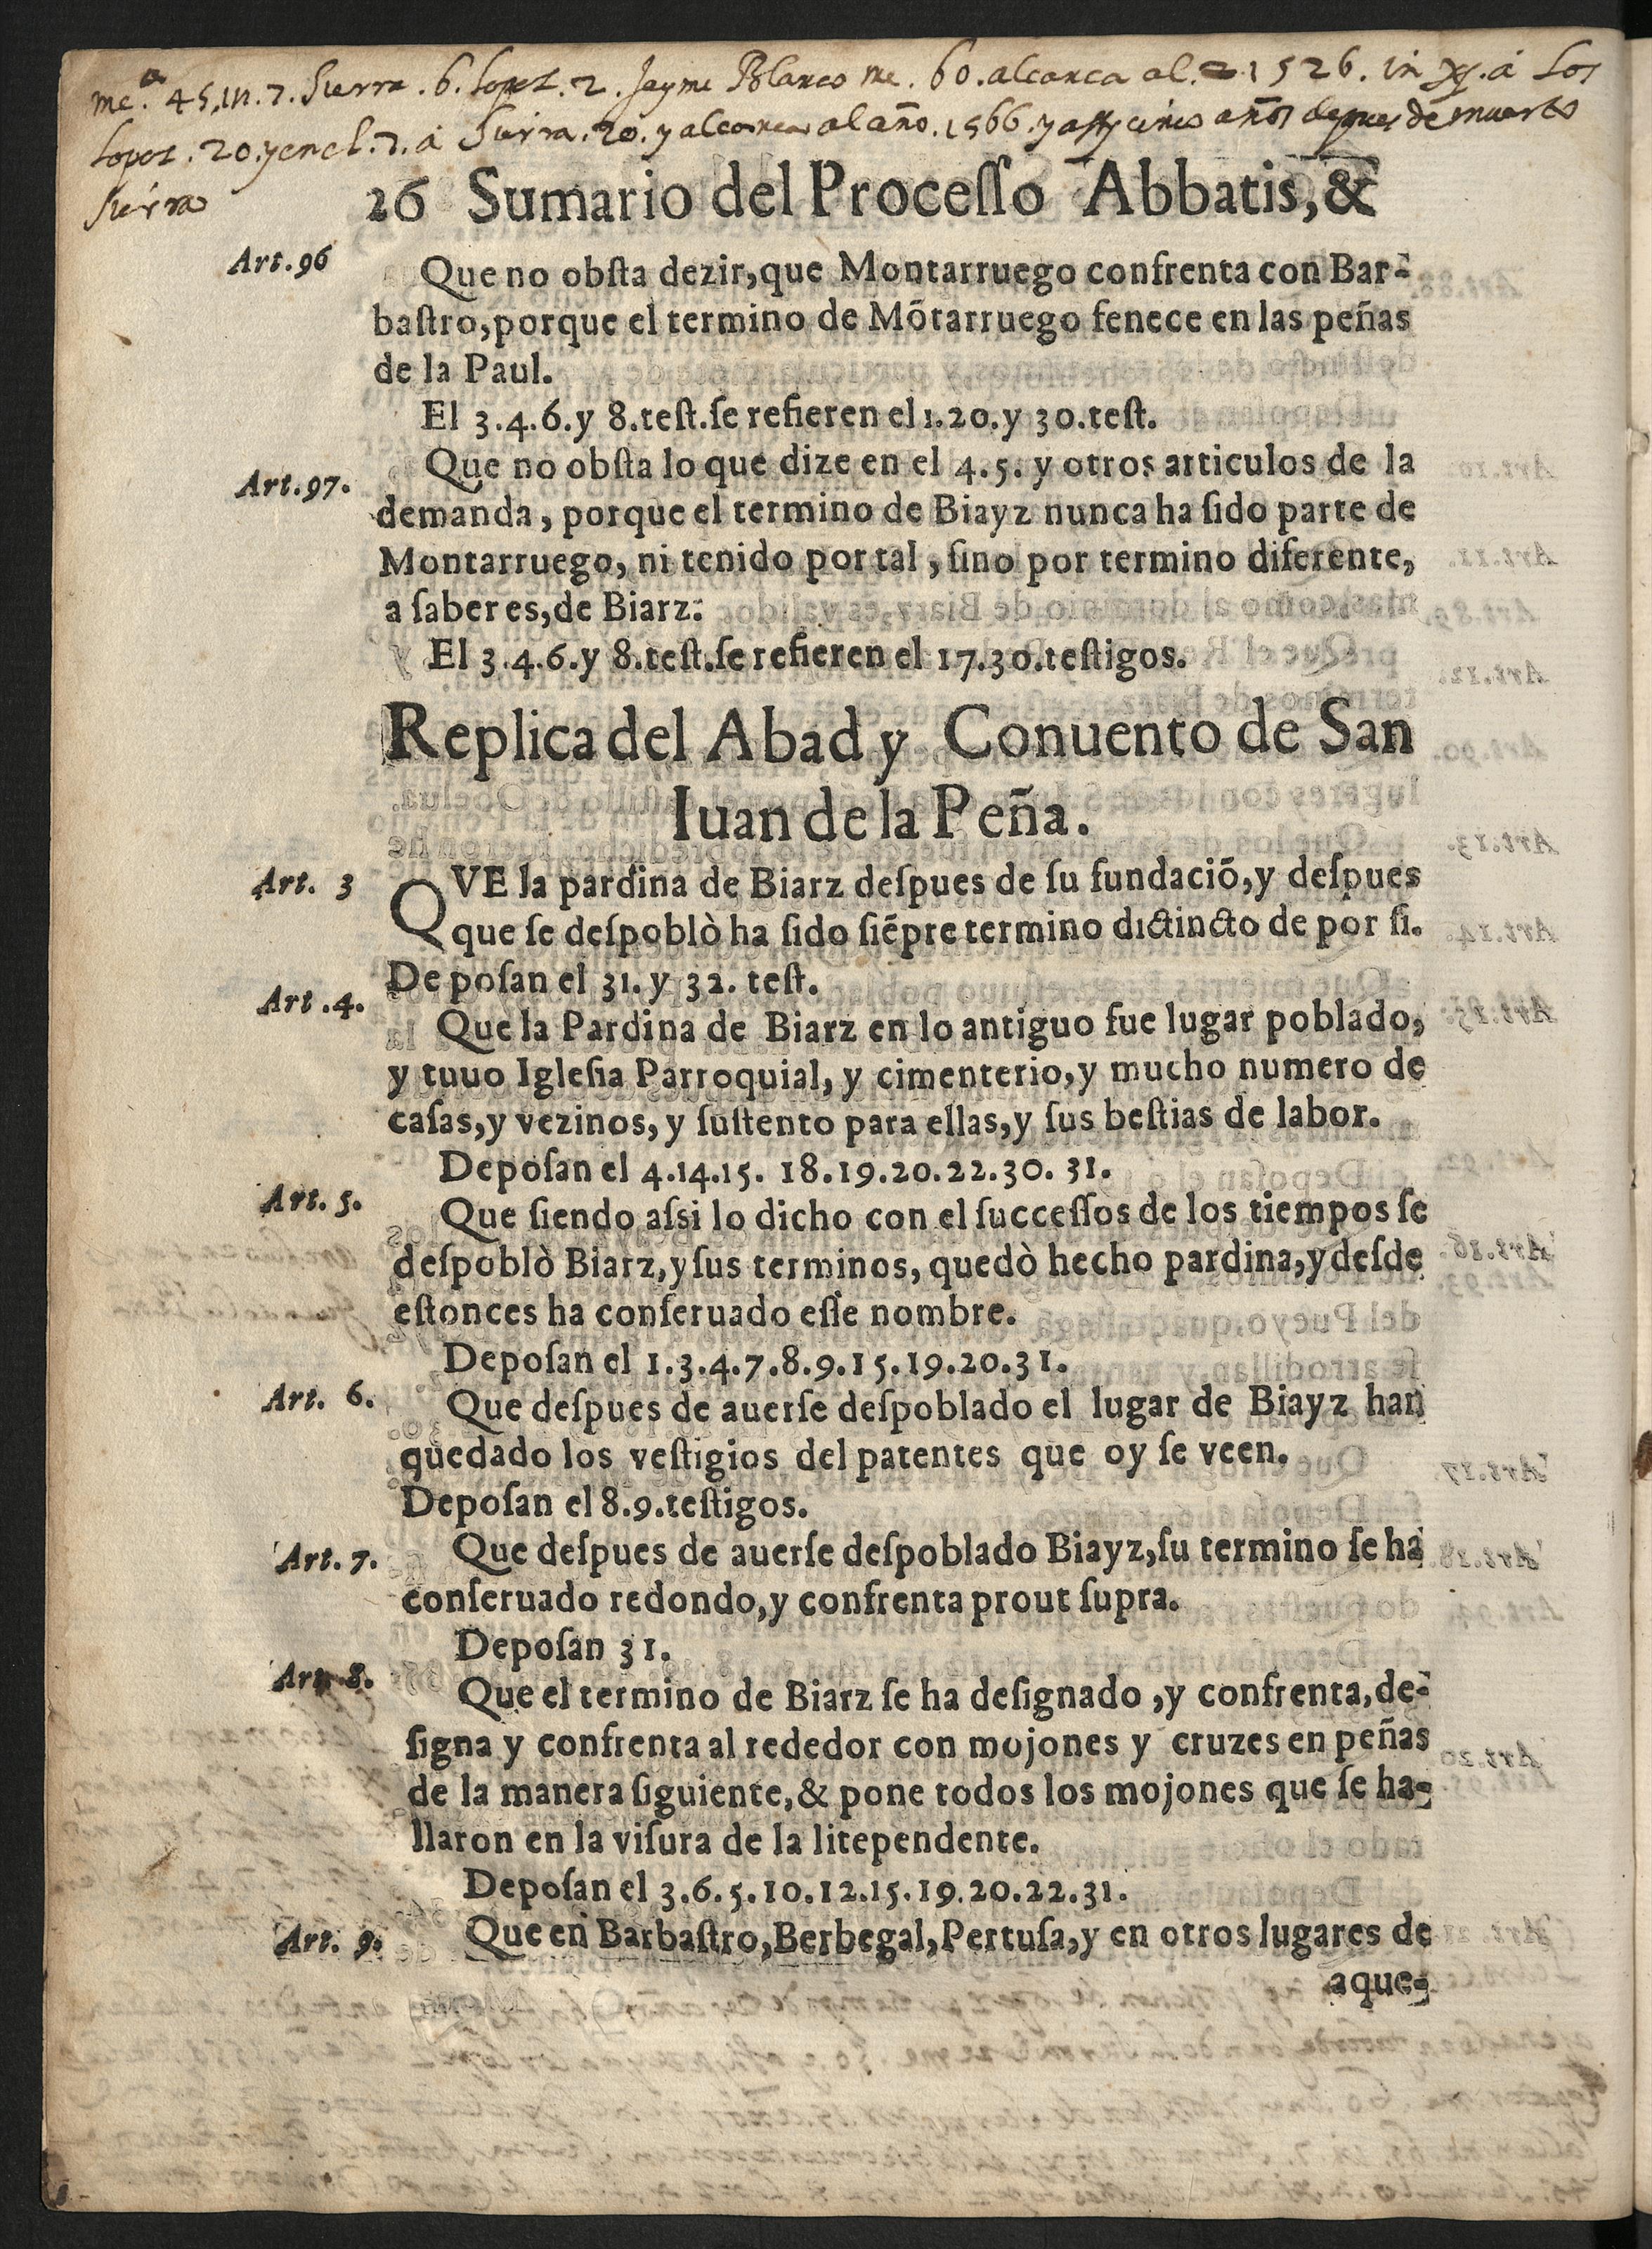 me.ª 45, in. 7. Sierra. 6. Lopez. 2. Jayme Blanco me. 60. alcança al. 1526. in. a Los
Lopez. 20. y en el. 7. a Sierra. 20. y alcança al año. 1566. y assy cinco años despues de muerto
Sierra
26 Sumario del Proceſſo Abbatis,&
Art.96
Que no obſta dezir,que Montarruego confrenta con Bar-
baſtro,porque el termino de Mõtarruego fenece en las peñas
de la Paul.
El 3.4.6.y 8.teſt.ſe refieren el 1.20.y 30.teſt.
Art.97.
Que no obſta lo que dize en el 4.5. y otros articulos de la
demanda, porque el termino de Biayz nunca ha ſido parte de
Montarruego, ni tenido por tal, ſino por termino diferente,
a ſaber es,de Biarz.
El 3.4.6.y 8.teſt.ſe refieren el 17.30.teſtigos.
Replica del Abad y Conuento de San
Iuan de la Peña.
Art. 3
QVE la pardina de Biarz deſpues de ſu fundaciõ,y deſpues
que ſe deſpoblò ha ſido ſiẽpre termino dictincto de por ſi.
Depoſan el 31. y 32. teſt.
Art.4.
Que la Pardina de Biarz en lo antiguo fue lugar poblado,
y tuuo Igleſia Parroquial, y cimenterio,y mucho numero de
caſas,y vezinos, y ſuſtento para ellas,y ſus beſtias de labor.
Depoſan el 4.14.15. 18.19.20.22.30. 31.
Art. 5.
Que ſiendo aſsi lo dicho con el ſucceſſos de los tiempos ſe
deſpoblò Biarz,y ſus terminos, quedò hecho pardina,y deſde
eſtonces ha conſeruado eſſe nombre.
Depoſan el 1.3.4.7.8.9.15.19.20.31.
Art. 6.
Que deſpues de auerſe deſpoblado el lugar de Biayz han
quedado los veſtigios del patentes que oy ſe veen.
Depoſan el 8.9.teſtigos.
Art. 7.
Que deſpues de auerſe deſpoblado Biayz,ſu termino ſe ha
conſeruado redondo,y confrenta prout ſupra.
Depoſan 31.
Art. 8.
Que el termino de Biarz ſe ha deſignado ,y confrenta,de-
ſigna y confrenta al rededor con mojones y cruzes en peñas
de la manera ſiguiente,& pone todos los mojones que ſe ha-
llaron en la viſura de la litependente.
Depoſan el 3.6.5.10.12.15.19.20.22.31.
Art. 9.
Que en Barbaſtro,Berbegal,Pertuſa,y en otros lugares de
aque-